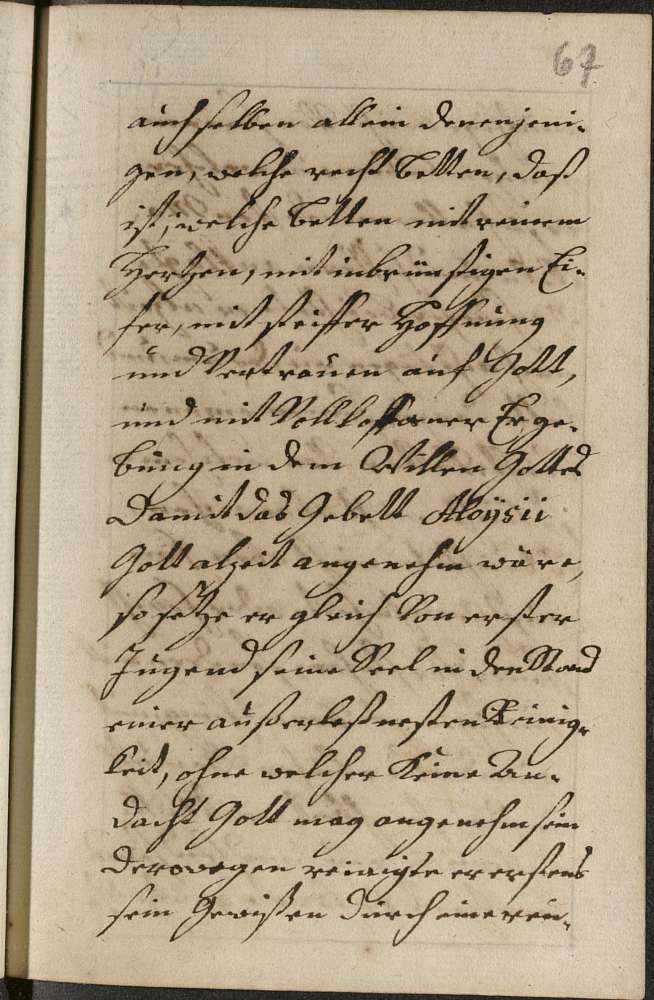 67
auch selben allein denenjeni-
gen, welche recht betten, daß
ist, welche betten mit reinem
Hertzen, mit inbrünstigen Ei-
fer, mit steiffer Hoffnung
und Vertrauen auf Gott,
und mit Vollkommner Erge-
bung in dem Willen Gottes
Damit das Gebett Aloÿsii
Gott alzeit angenehm wäre,
so setze er gleich Von erster
Jugend seine Seel in den Stand
einer außerleßnesten Reinig-
keit, ohne welcher Keine An-
dacht Gott mag angenehm sein
derowegen reinigte er erstens
sein Gewißen durch eine reü-